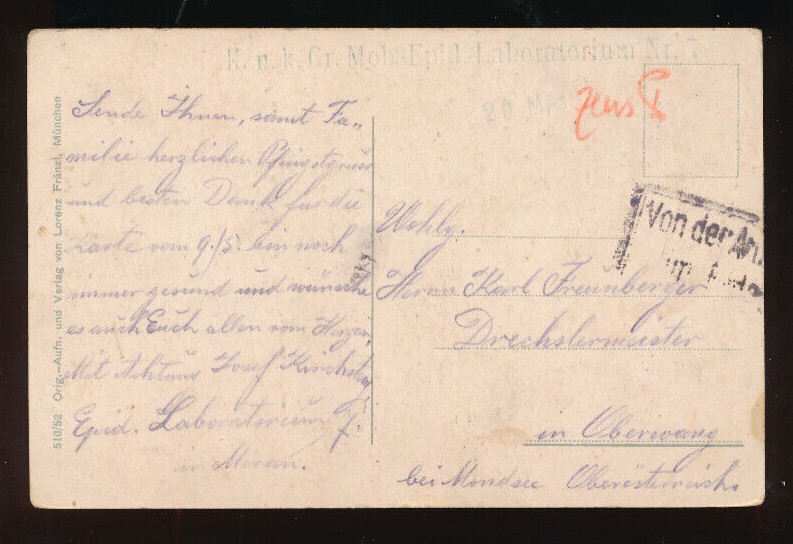 K. u. k. Gr. Mob.-Epid.-Laboratorium Nr. 7
20. MAI
zens
Sende Ihnen, samt Fa„
milie herzlichen Pfingstgruss
und besten Dank für die
Karte vom 9./5. bin noch
immer gesund und wünsche
es auch Euch allen vom Herzen,
Mit Achtung Josef
Epid. Laboratorium 7.
in Meran.
Wohlg.
Herrn Karl Freunberger
Drechslermeister
in Oberwang
bei Mondsee Oberösterreich.
Von der
510/52 Orig.-Aufn. und Verlag von Lorenz Fränzl, München